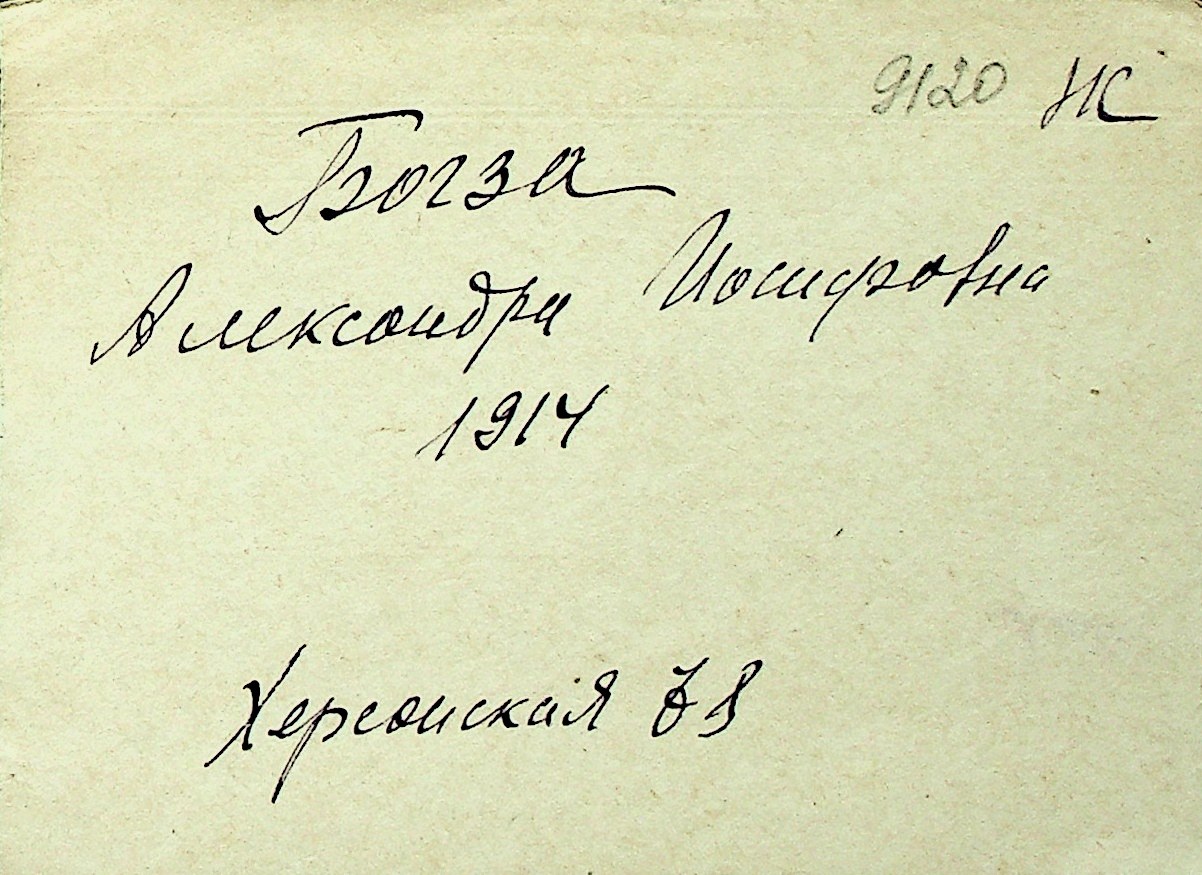 9120 НС
Богза
Александра Иосифовна
1914
Херсонская